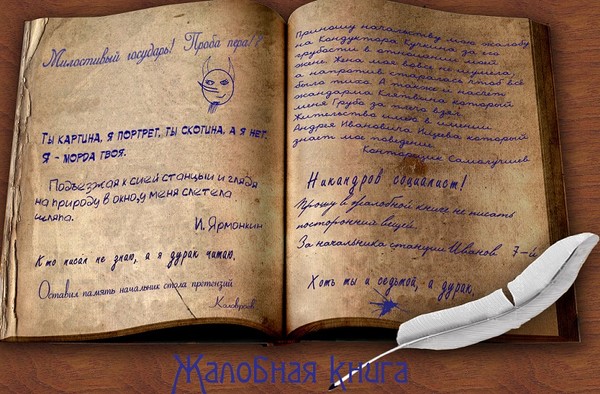 Милостивый государь! Проба пера!?
Ты картина, я портрет, ты скотина, а я нет.
Я - морда твоя.
Подъезжая к сией станцыи и глядя
на природу в окно, у меня слетела
шляпа.
И. Ярмонкин
Кто писал не знаю, а я дурак читаю.
Оставил память начальник стола претензий
Коловроев
Приношу начальству мою жалобу
на Кондуктора Кучкина за его
грубости в отношении моей
жене. Жена моя вовсе не шумела,
а напротив старалась чтоб всё
было тихо. А также и насчёт
жандарма Клятвина который
меня Грубо за плечо взял.
Жительство имею в имении
Андрея Ивановича Ищеева который
знает мое поведение.
Конторщик Самолучшев
Никандров социалист!
Прошу в жалобной книге не писать
посторонних вещей.
За начальника станции Иванов 7-й
Хоть ты и седьмой, а дурак.
Жалобная книга